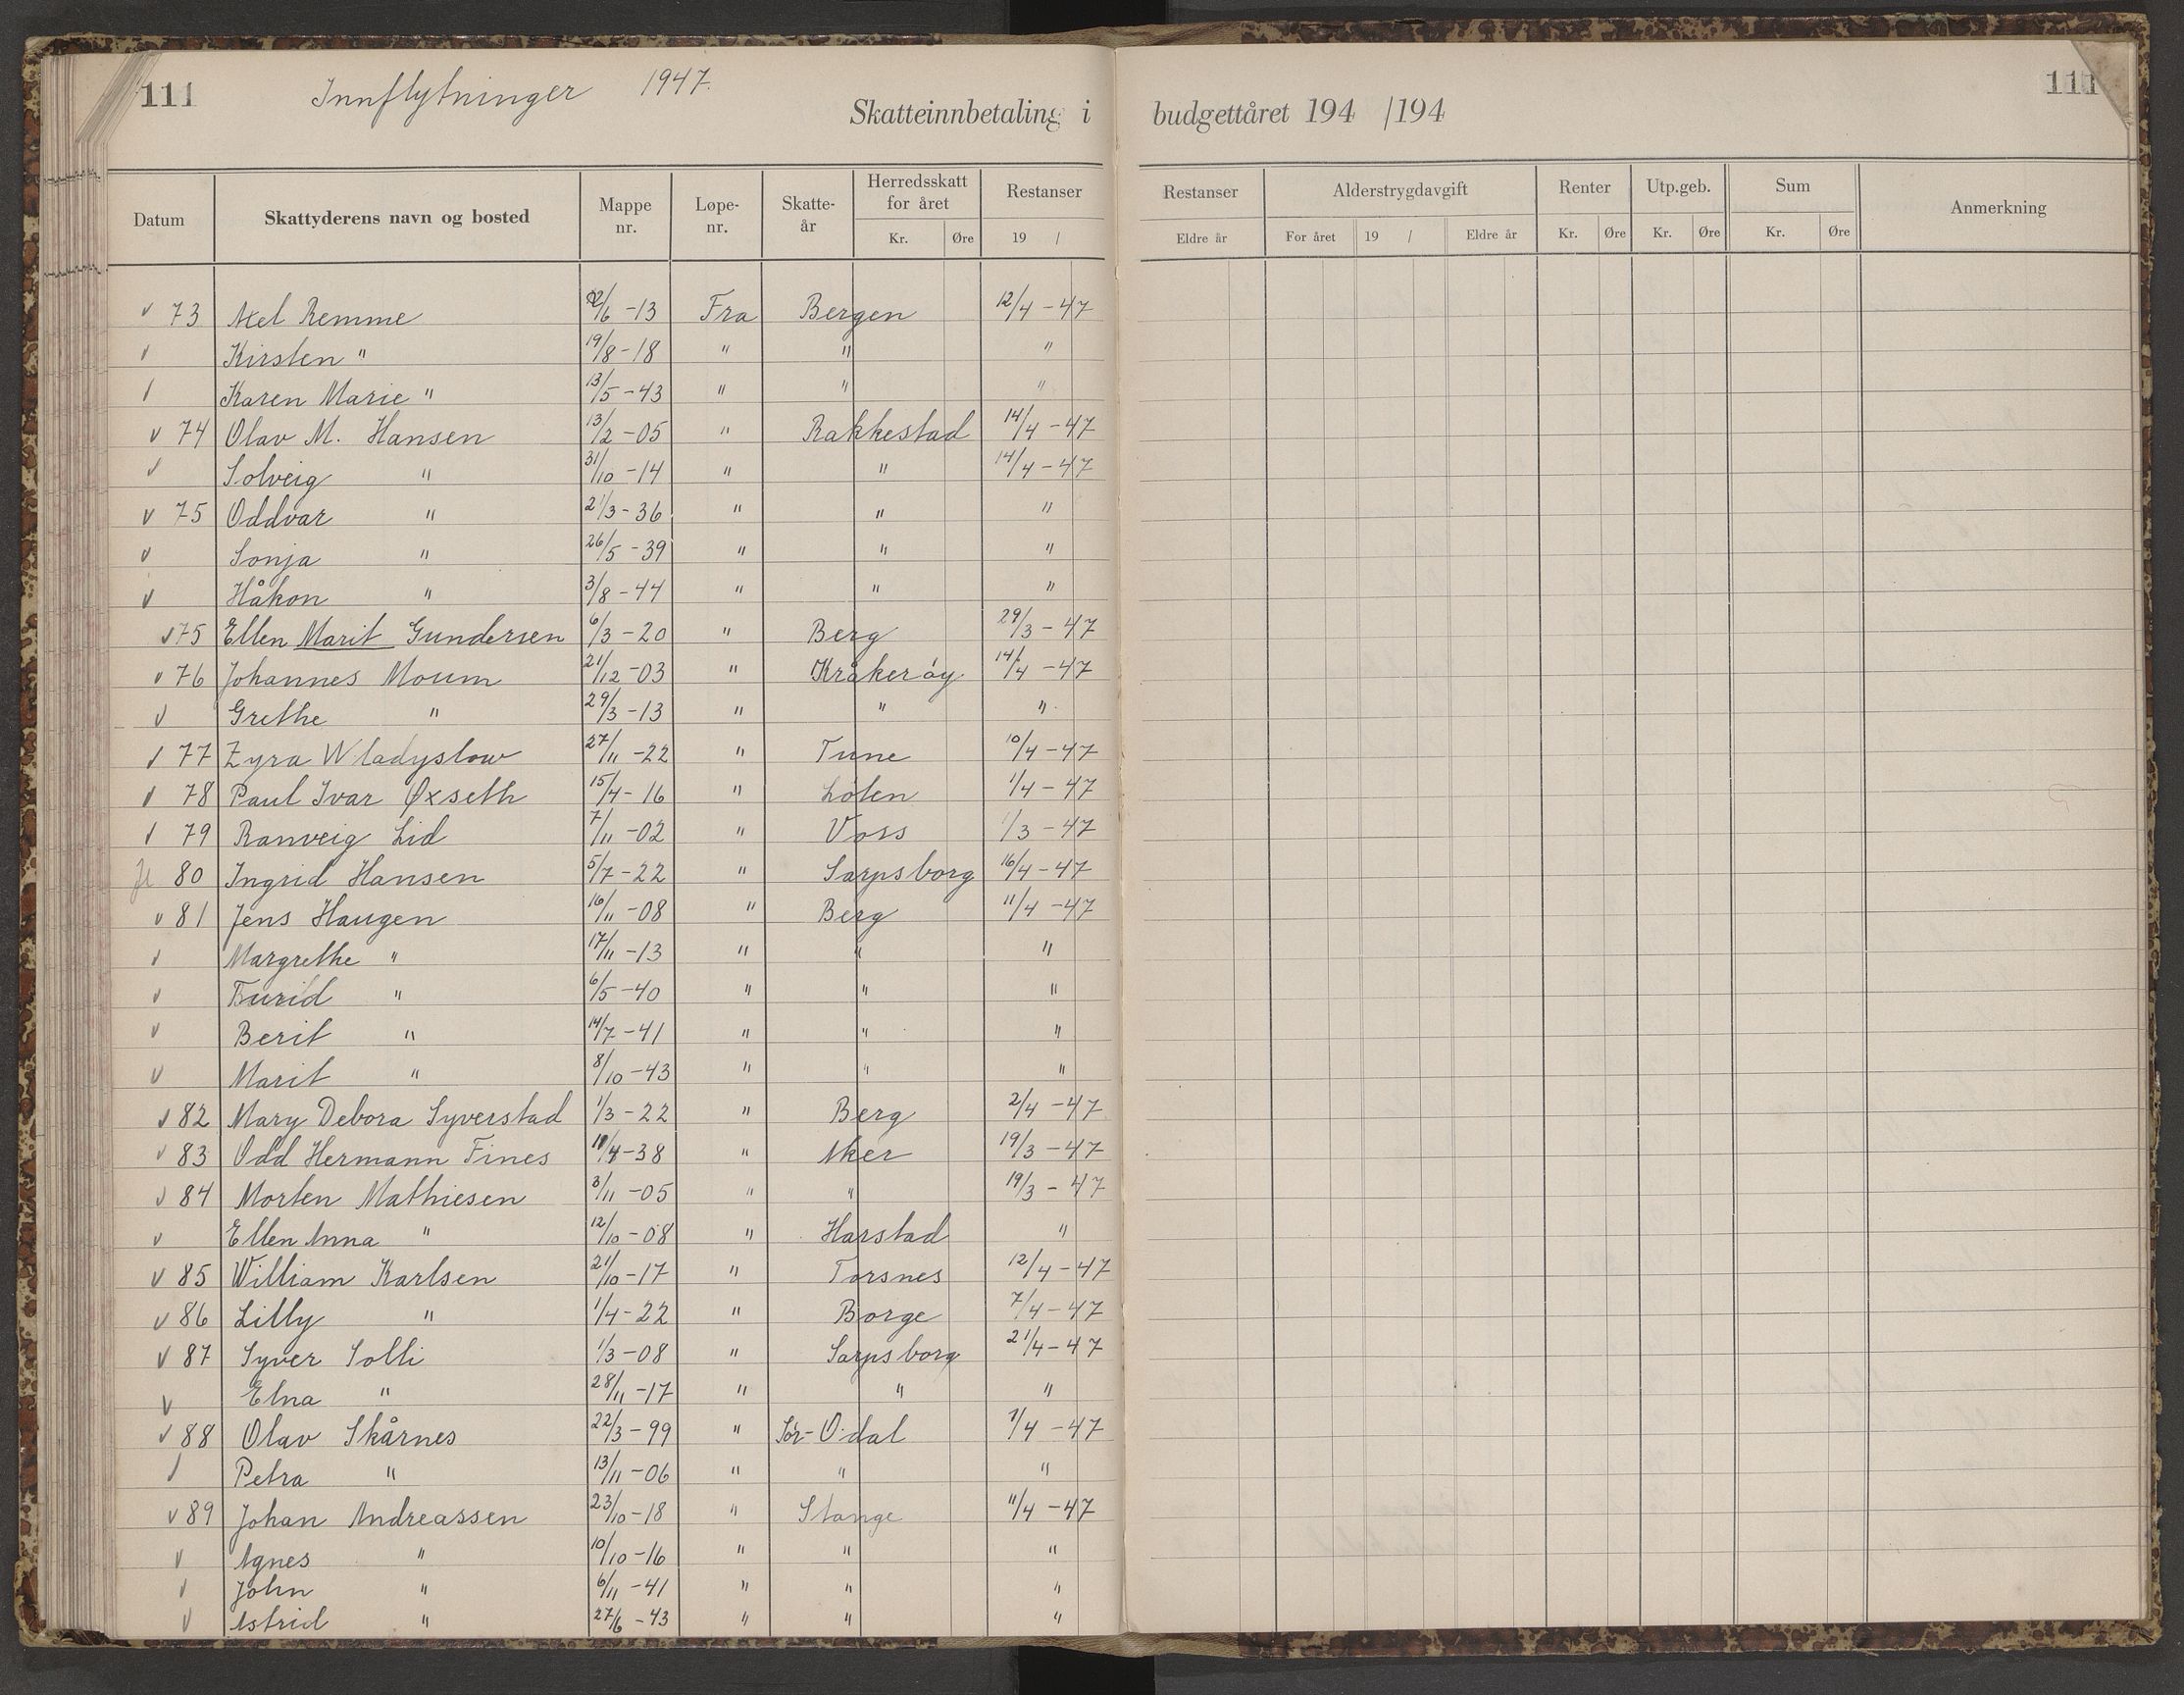 111 Innflytninger 1947. Skatteinnbetaling i budgettåret 194 /194 111
Datum Skattyderens navn og bosted Mappe nr. Løpe-nr. Skatte-år Herredsskatt for året Kr. Øre Restanser 19 / Restanser Eldre år Alderstrygdavgift For året 19 / Eldre år Renter Kr. Øre Utp.geb. Kr. Øre Sum Kr. Øre Anmerkning
v 73 Axel Remme /6 -13 Fra Bergen 12/4 -47
v Kirsten " 19/8 -18 " " "
/ Karen Marie " 13/5 -43 " " "
v 74 Olav M. Hansen 13/2 -05 " Rakkestad 14/4 -47
v Solveig " 31/10 -14 " " 14/4 -47
v 75 Oddvar " 21/3 -36 " " "
v Sonja " 26/5 -39 " " "
v Håkon " 3/8 -44 " " "
v 75 Ellen Marit Gundersen 6/3 -20 " Berg 29/3 -47
v 76 Johannes Moum 21/12 -03 " Kråkerøy 14/4 -47
v Grethe " 29/3 -13 " " "
v 77 Zyra Wladyslow 27/11 -22 " Tune 10/4 -47
v 78 Paul Ivar Øxseth 15/4 -16 " Løten 1/4 -47
v 79 Ranveig Lid 7/11 -02 " Voss 1/3 -47
80 Ingrid Hansen 5/7 -22 " Sarpsborg 16/4 -47
v 81 Jens Haugen 16/11 -08 " Berg 11/4 -47
v Margrethe " 17/11 -13 " " "
v Turid " 6/5 -40 " " "
v Berit " 14/7 -41 " " "
v Marit " 8/10 -43 " " "
v 82 Mary Debora Syverstad 1/3 -22 " Berg 2/4 -47
v 83 Odd Hermann Fines 11/4 -38 " Aker 19/3 -47
v 84 Morten Mathiesen 3/11 -05 " " 19/3 -47
v Ellen Anna " 12/10 -08 " Harstad "
v 85 William Karlsen 21/10 -17 " Torsnes 12/4 -47
v 86 Lilly " 1/4 -22 " Borge 7/4 -47
v 87 Syver Solli 1/3 -08 " Sarpsborg 21/4 -47
v Elna " 28/11 -17 " " "
v 88 Olav Skårnes 22/3 -99 " Sør-Odal 1/4 -47
v Petra " 13/11 -06 " " "
v 89 Johan Andreassen 23/10 -18 " Stange 11/4 -47
v Agnes " 10/10 -16 " " "
v John " 6/11 -41 " " "
v Astrid " 27/6 -43 " " "